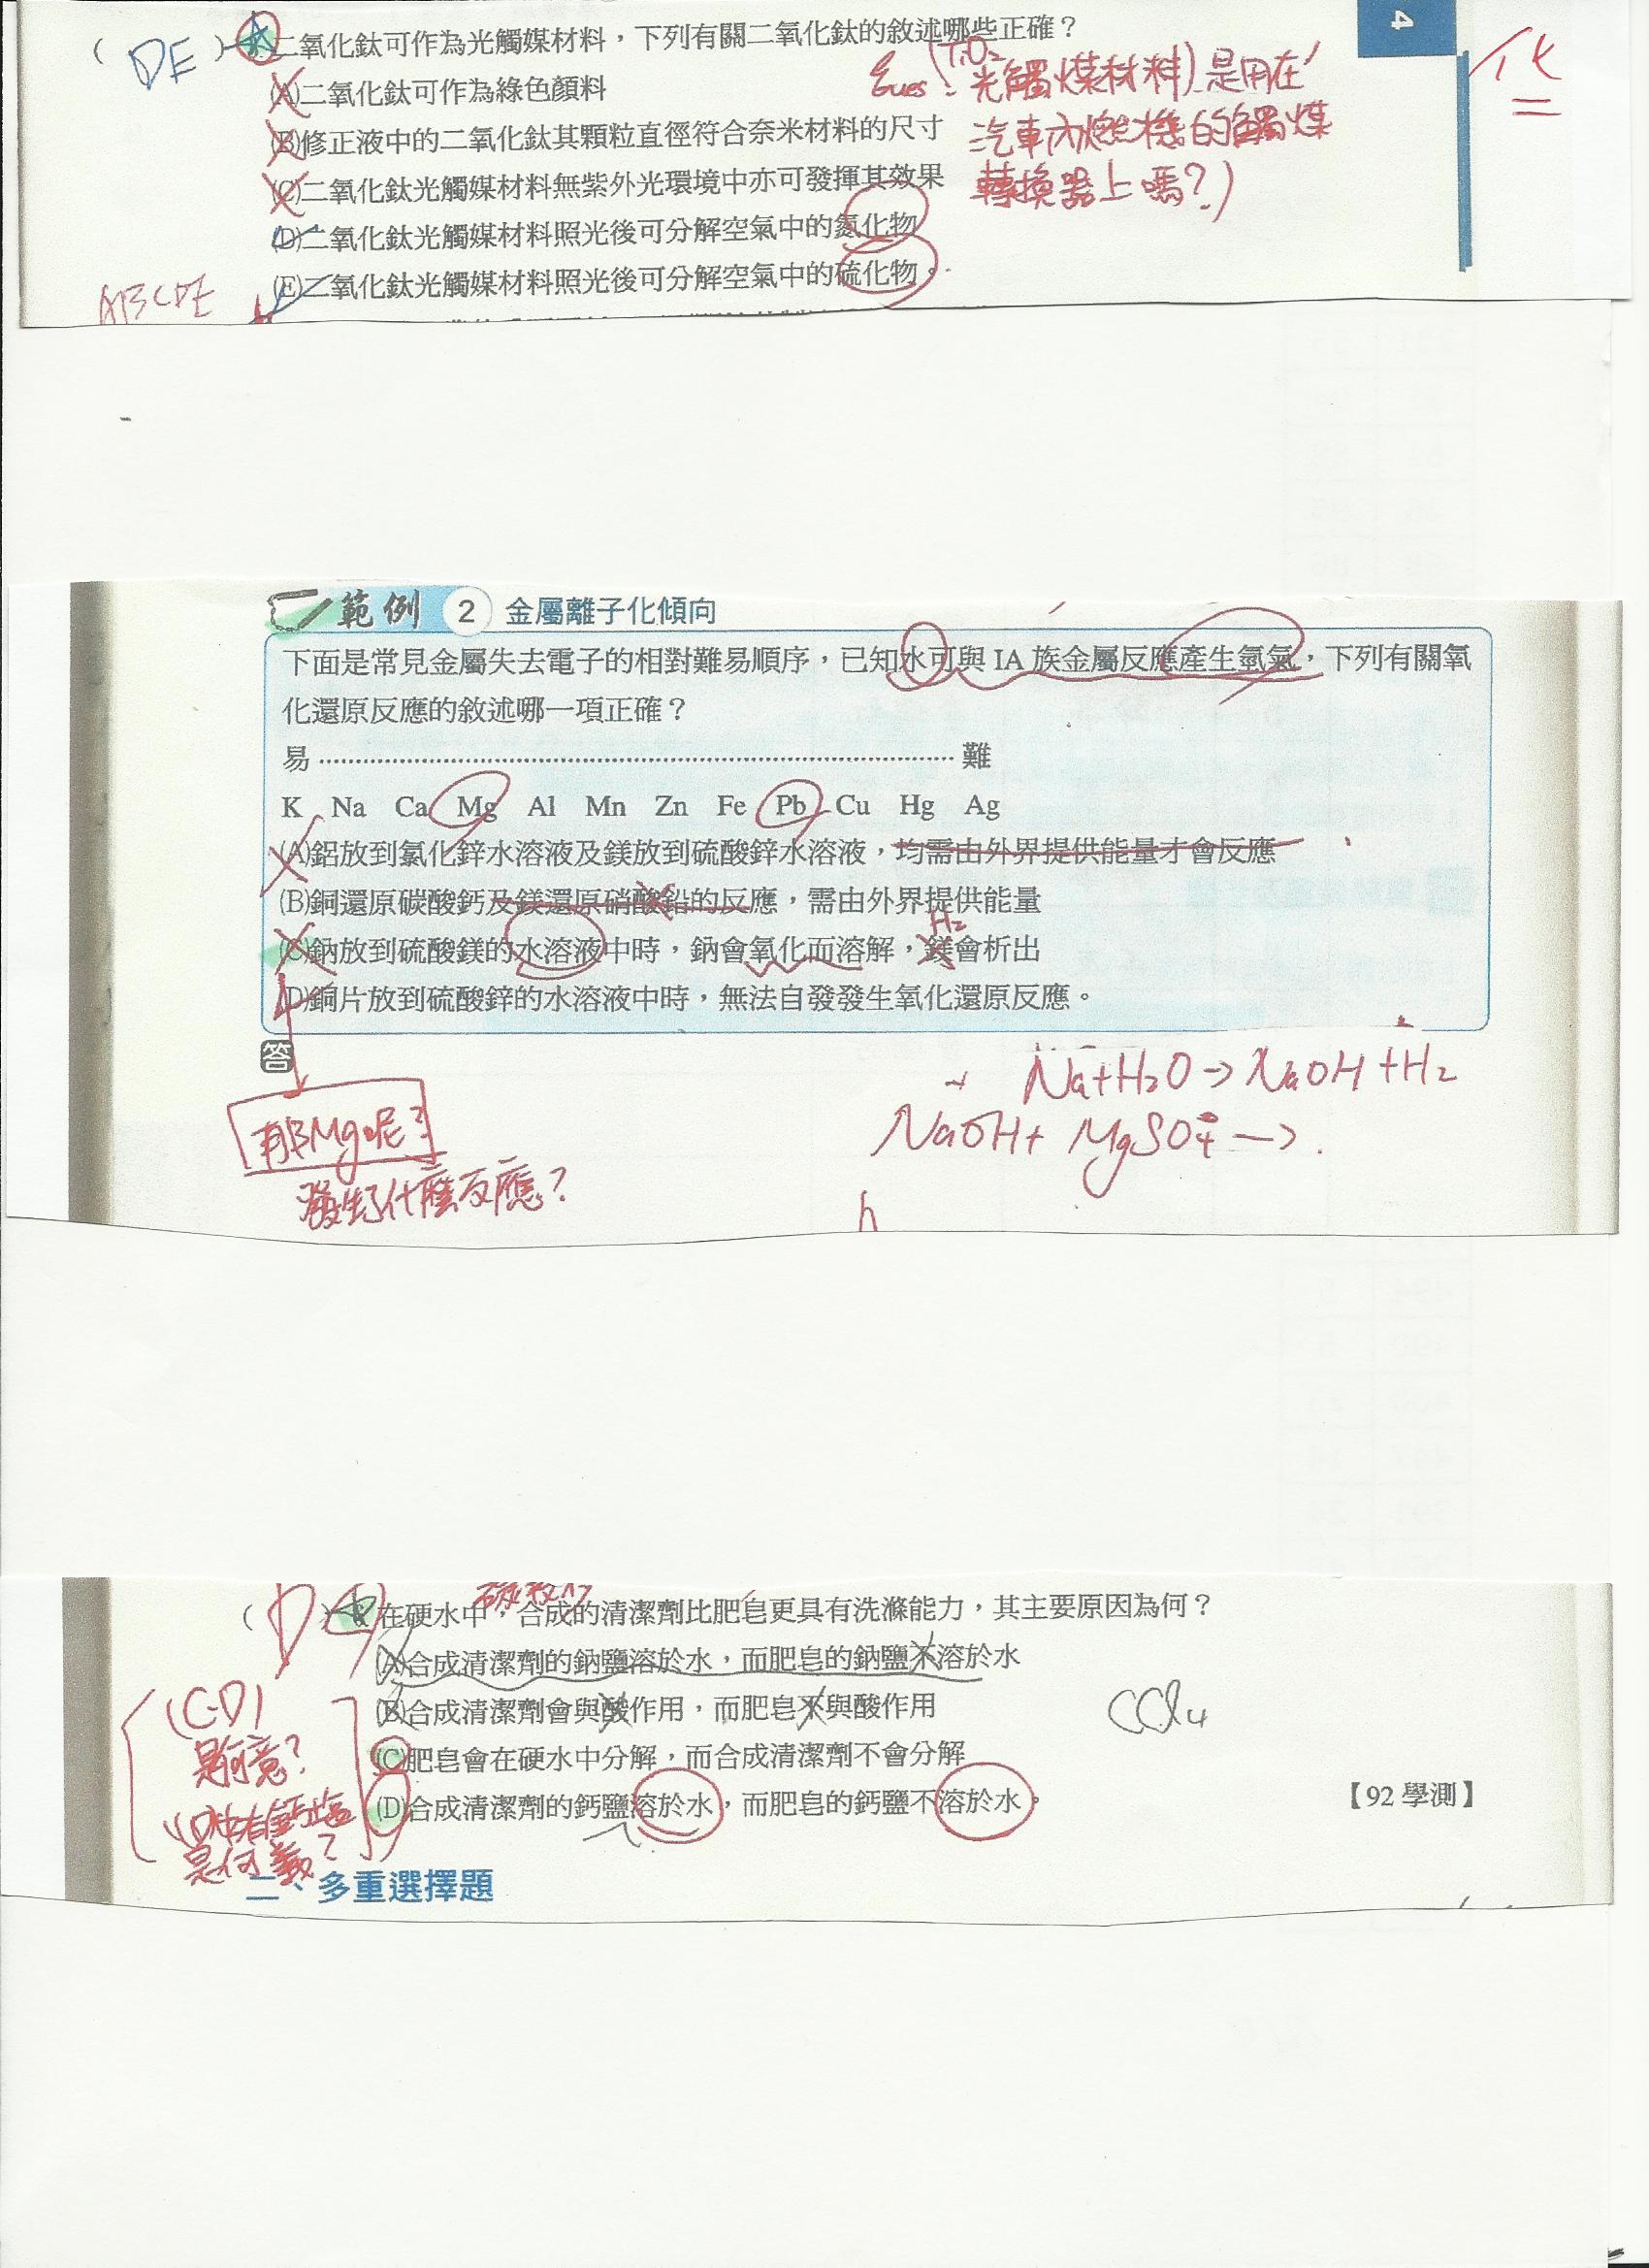 4
( DE ) 二氧化鈦可作為光觸媒材料，下列有關二氧化鈦的敘述哪些正確？
(A)二氧化鈦可作為綠色顏料
(B)修正液中的二氧化鈦其顆粒直徑符合奈米材料的尺寸
(C)二氧化鈦光觸媒材料無紫外光環境中亦可發揮其效果
(D)二氧化鈦光觸媒材料照光後可分解空氣中的氮化物
(E)二氧化鈦光觸媒材料照光後可分解空氣中的硫化物。
(TiO2
光觸煤材料)是用在
汽車內燃機的觸煤
轉換器上嗎？)
ABCDE
範例 2 金屬離子化傾向
下面是常見金屬失去電子的相對難易順序，已知水可與 IA 族金屬反應產生氫氣，下列有關氧
化還原反應的敘述哪一項正確？
易 ⋯⋯⋯⋯⋯⋯⋯⋯⋯⋯⋯⋯⋯⋯⋯⋯ 難
K Na Ca Mg Al Mn Zn Fe Pb Cu Hg Ag
(A)鋁放到氯化鋅水溶液及鎂放到硫酸鋅水溶液，均需由外界提供能量才會反應
(B)銅還原碳酸鈣及鎂還原硝酸鉛的反應，需由外界提供能量
H2
(C)鈉放到硫酸鎂的水溶液中時，鈉會氧化而溶解，鎂會析出
(D)銅片放到硫酸鋅的水溶液中時，無法自發發生氧化還原反應。
答
Na+H2O→NaOH+H2
NaOH+ MgSO4→
那Mg呢？
發生了什麼反應？
( D ) 在硬水中，合成的清潔劑比肥皂更具有洗滌能力，其主要原因為何？
(A)合成清潔劑的鈉鹽溶於水，而肥皂的鈉鹽不溶於水
(B)合成清潔劑會與酸作用，而肥皂不與酸作用
(C)肥皂會在硬水中分解，而合成清潔劑不會分解
(D)合成清潔劑的鈣鹽溶於水，而肥皂的鈣鹽不溶於水。
【92 學測】
CCl4
(C.D)
是何意？
是何義？
二、多重選擇題